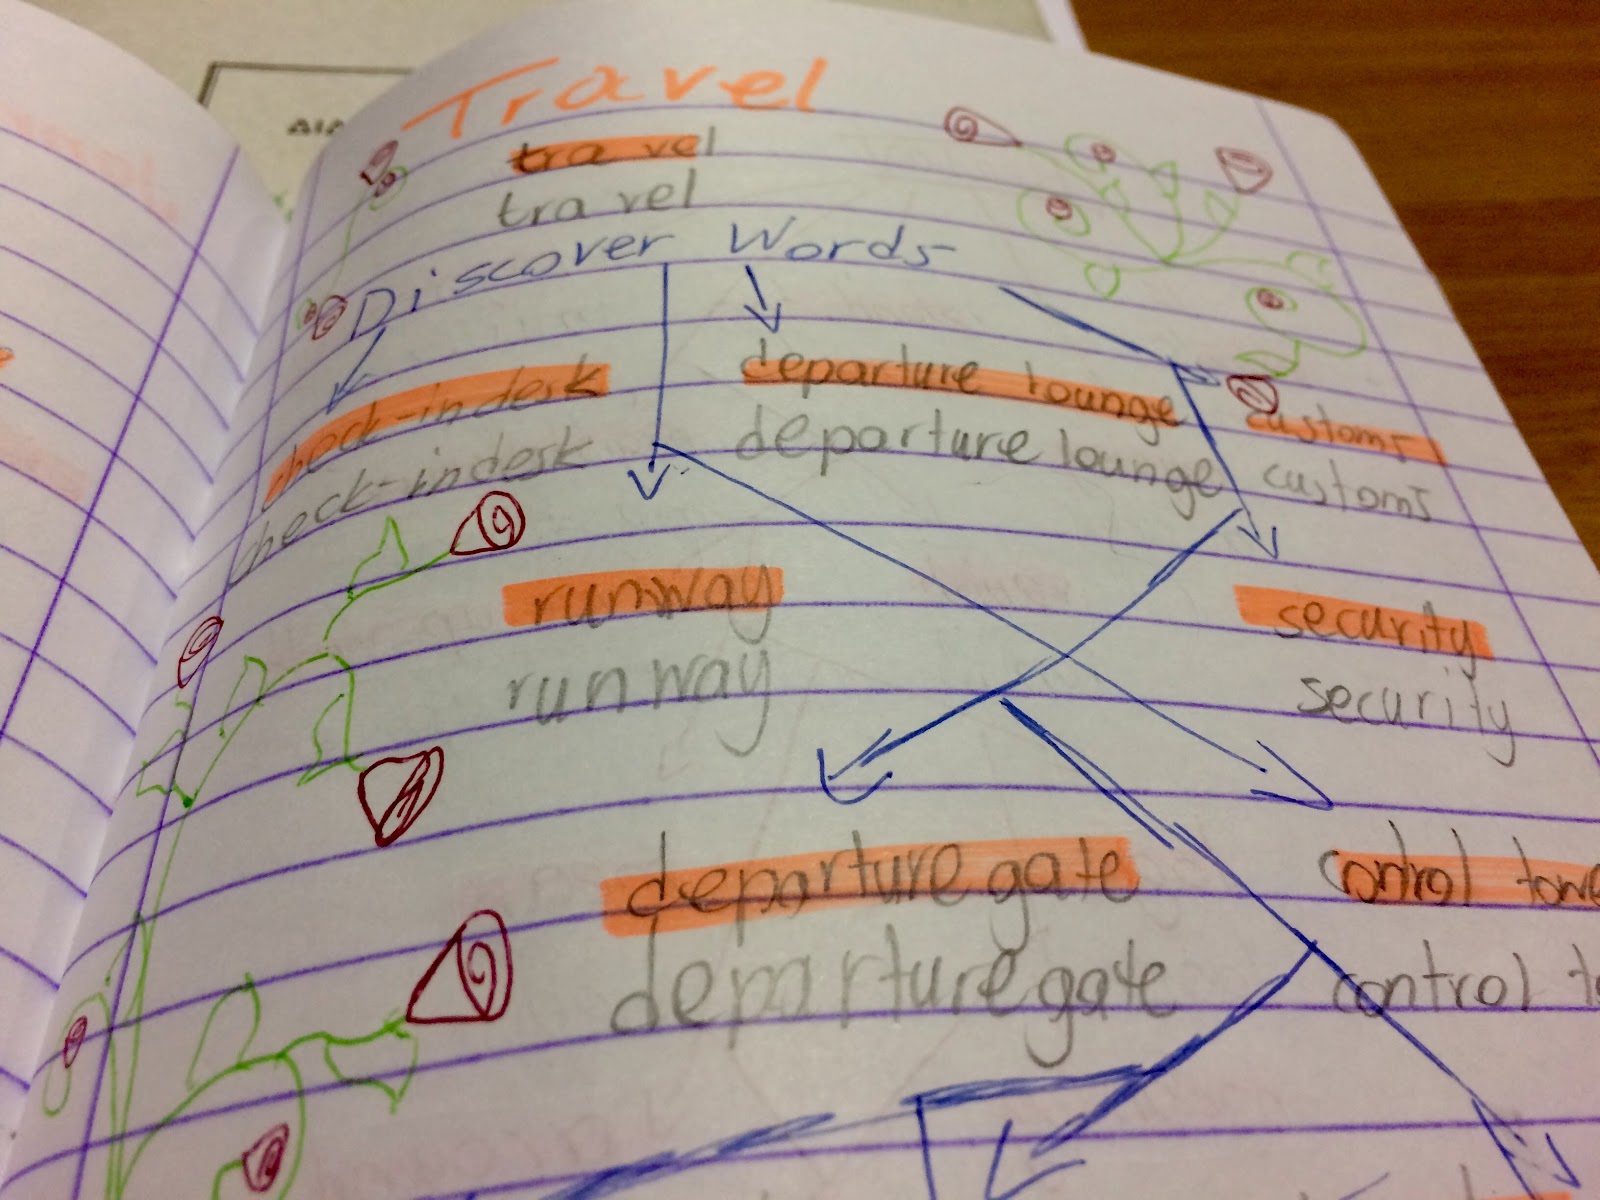 Travel
travel
travel
Discover Words
check-in desk
check-in desk
departure lounge
departure lounge
customs
customs
runway
runway
security
security
departure gate
departure gate
control towe
control to